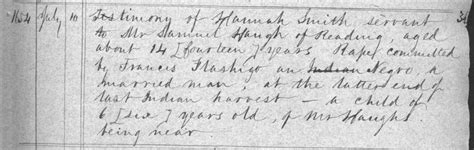 1654 July 10 Testimony of Hannah Smith servant
to Mr Samuel Haugh of Reading, aged
about 14 [fourteen] years Rape committed
by Francis Flashigo an Indian Negro, a
married man; at the latter end of
last Indian harvest – a child of
6 [six] years old, of Mr Haughs
being near